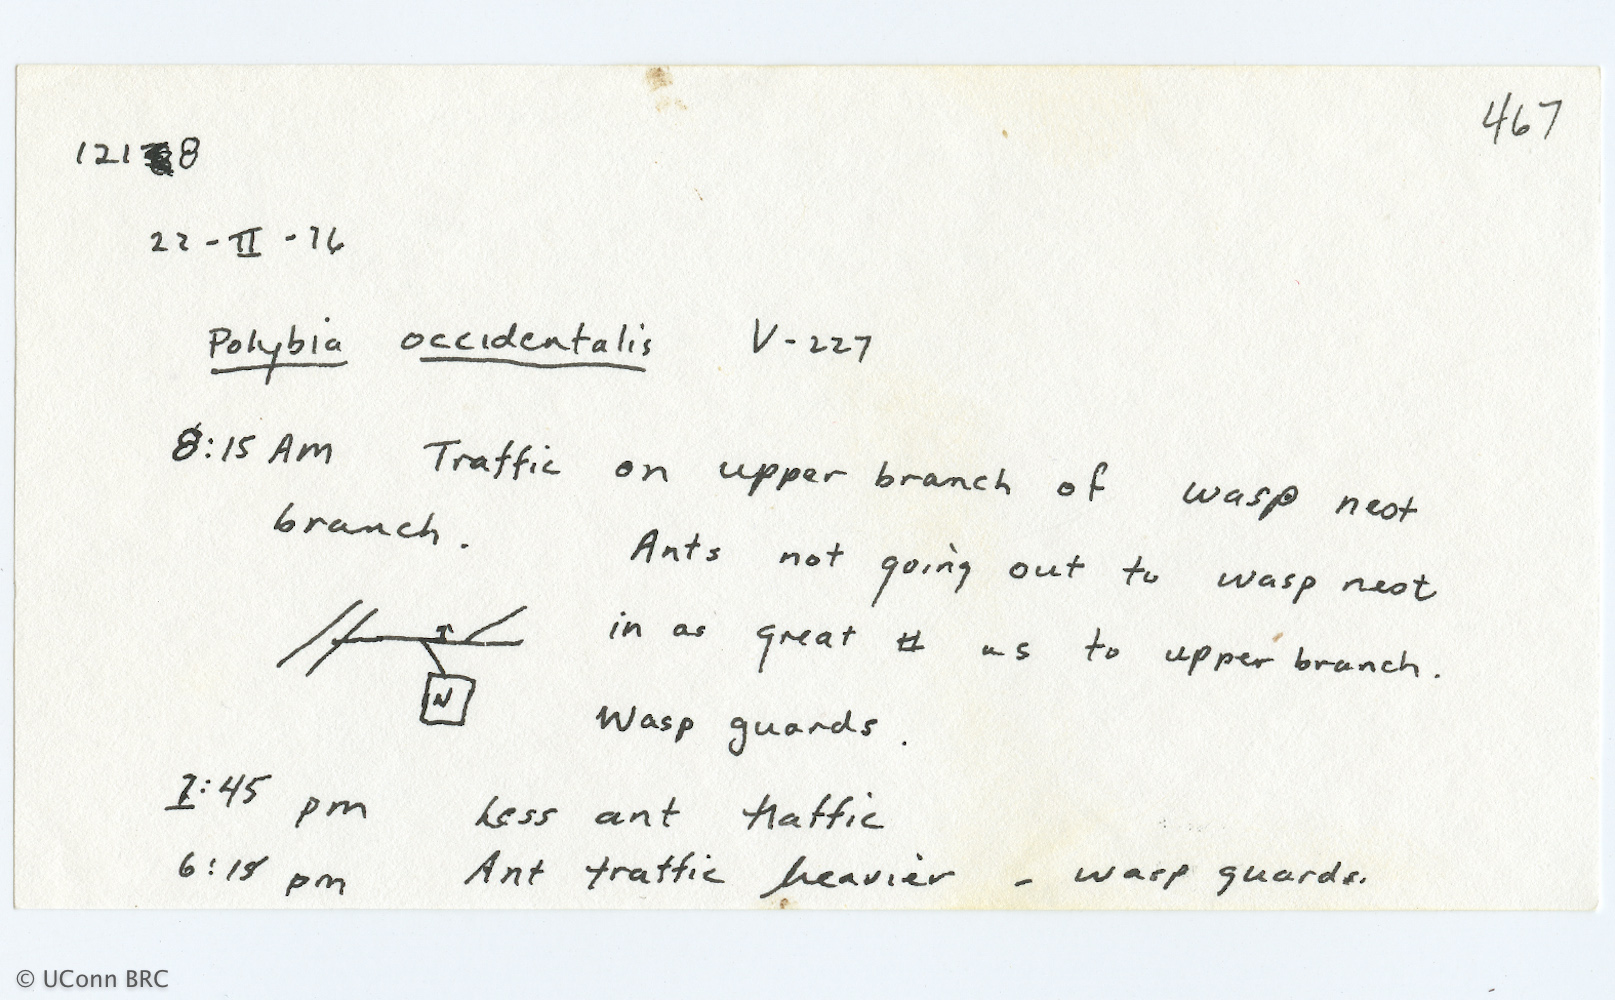 467
1218
22-II-76
Polybia occidentalis V-227
8:15 Am Traffic on upper branch of wasp nest
branch. Ants not going out to wasp nest
in as great # as to upper branch.
N
Wasp guards.
1:45 pm Less ant traffic
6:18 pm Ant traffic heavier - wasp guards.
© UConn BRC